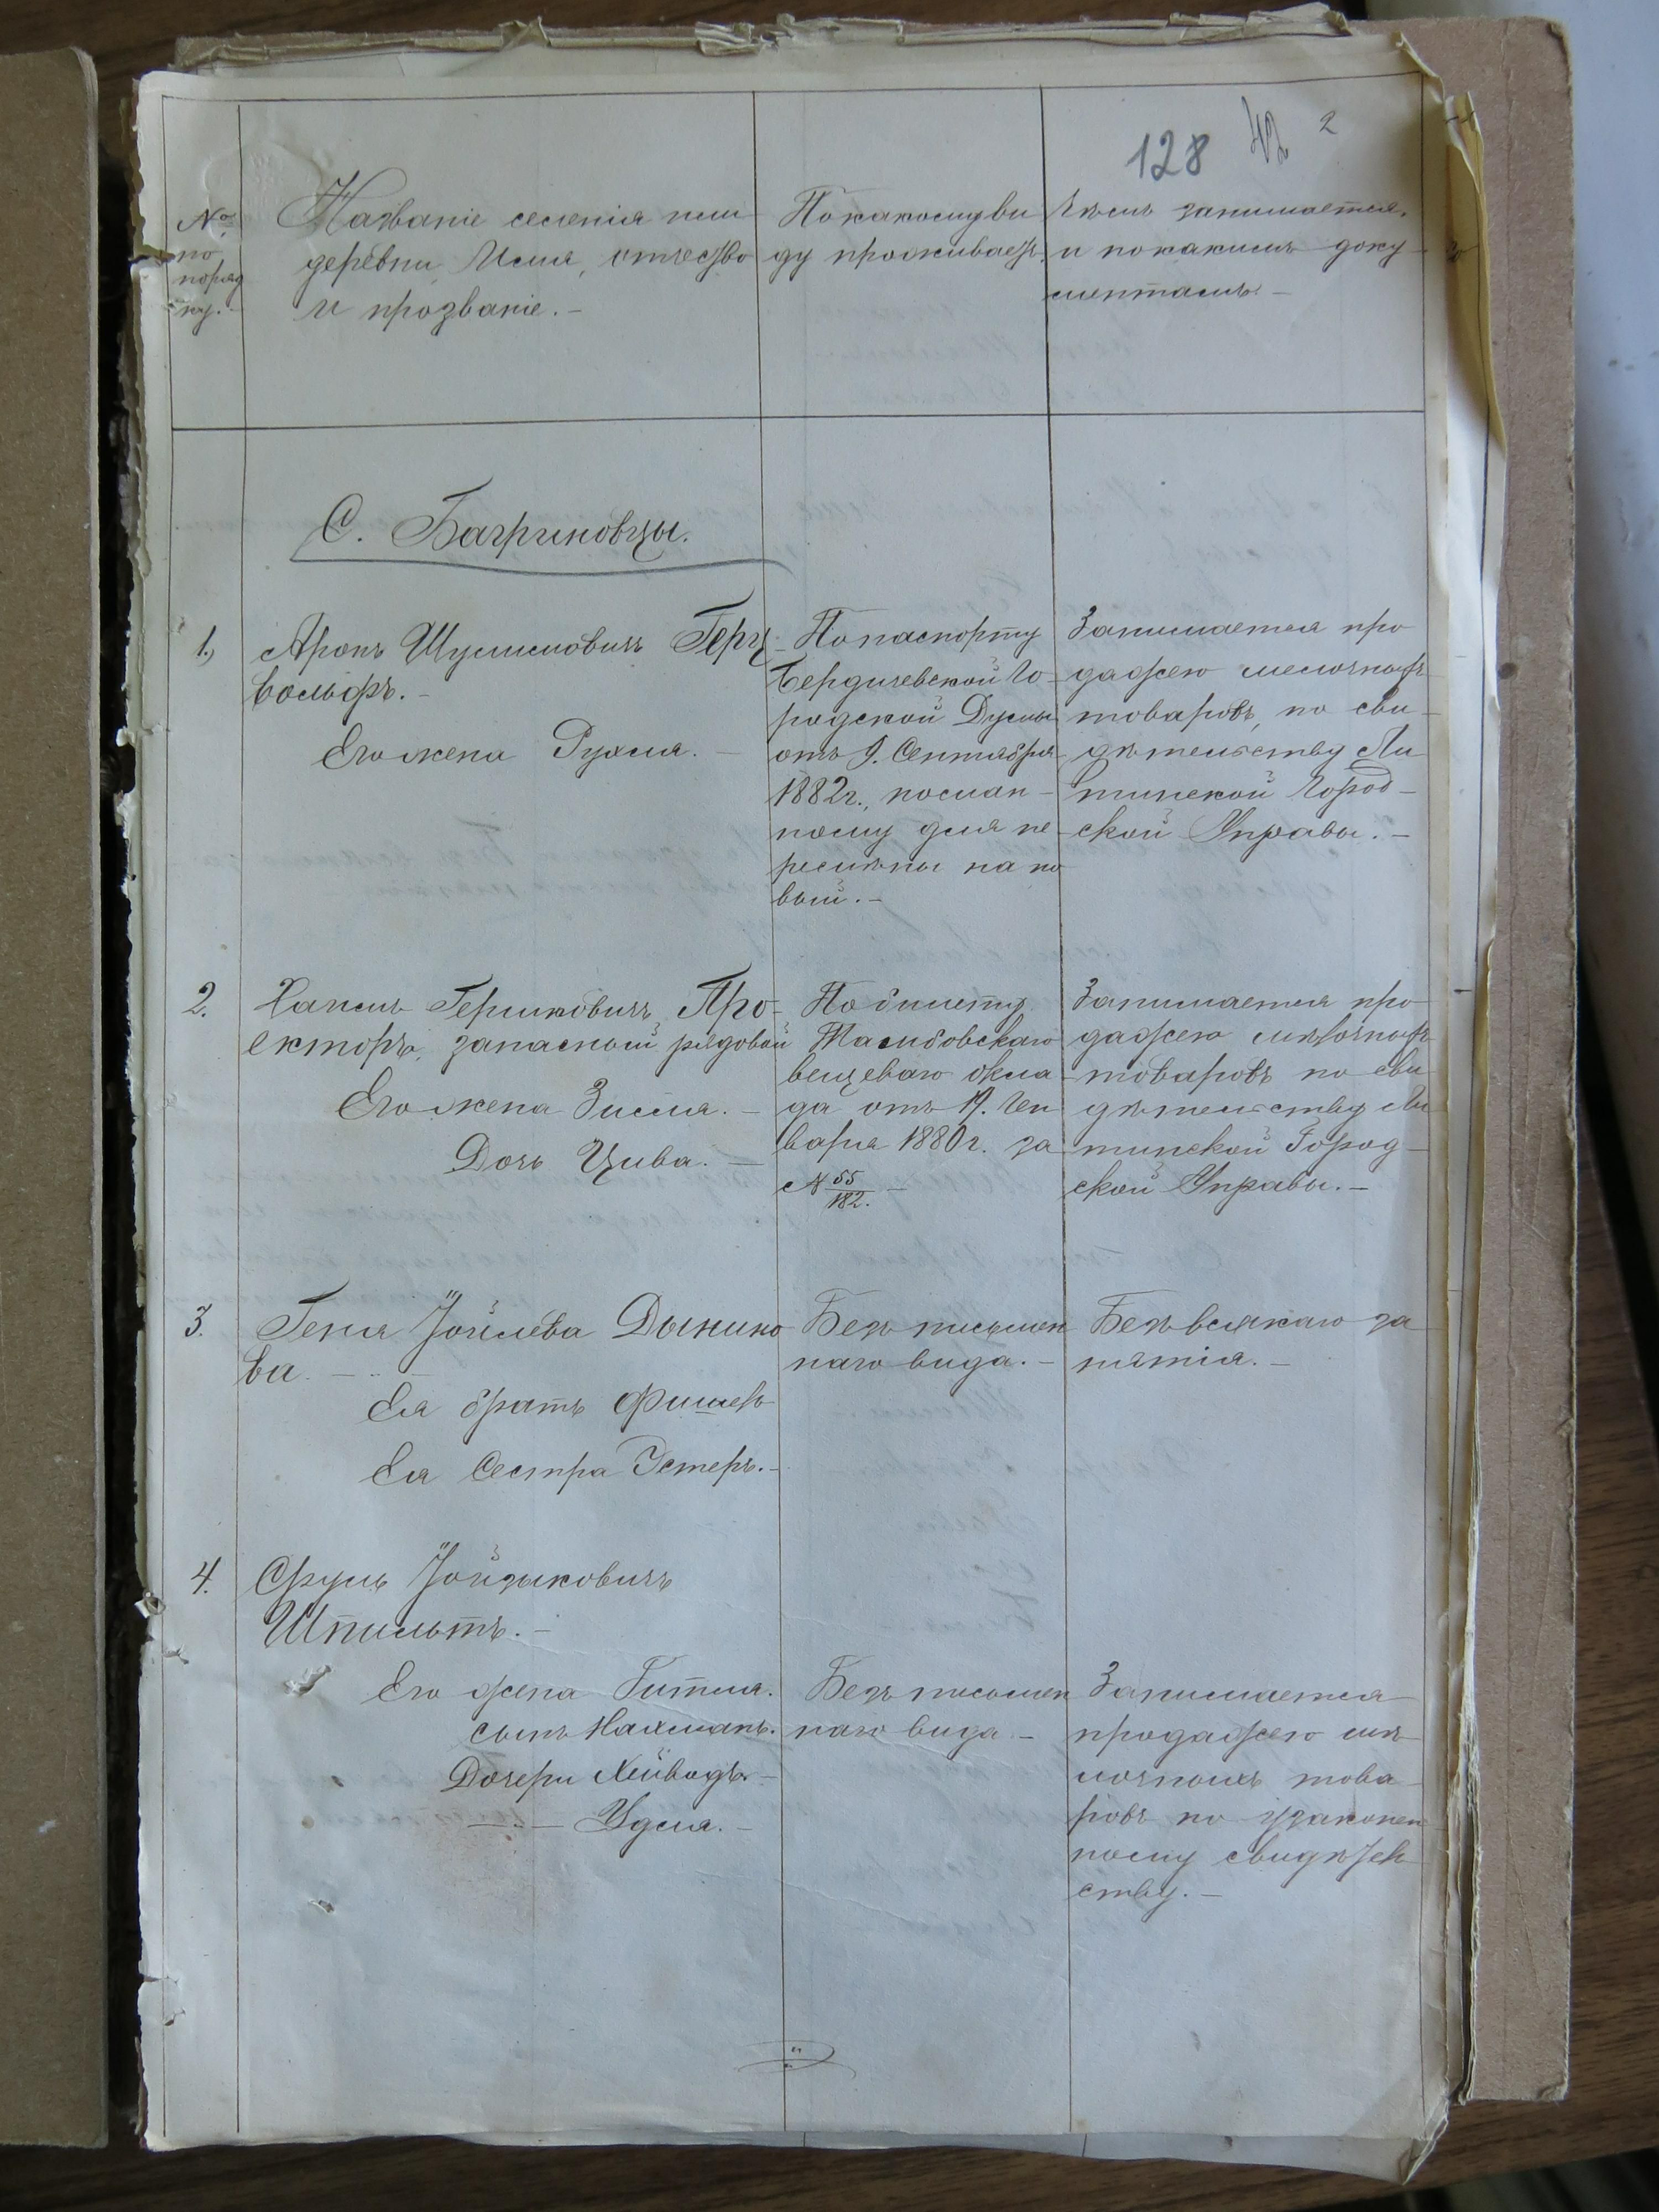 128 42 2
№
по
поряд
ку.
Названіе селенія или
деревни, Имя, отчество
и прозваніе. —
По какому ви
ду проживаетъ
Чѣмъ занимается,
и по какимъ доку
ментамъ. —
С. Багриновцы.
1.
Аронъ Шулимовичъ Герц
вольфъ. —
Его жена Рухля. —
По паспорту
Бердичевской Го-
родской Думы
отъ 9. Сентября
1882 г., послан-
ному для пе-
ремѣны на но
вый. —
Занимается про
дажею мелочныхъ
товаровъ, по сви-
дѣтельству Ли
тинской Город-
ской Управы. —
2.
Хаимъ Гершковичъ Про-
екторъ, запасный рядовой
Его жена Зисля. —
Дочь Цива. —
По билету
Тамбовскаго
вещеваго скла
да отъ 19. Ген
варя 1880 г. за
№ 55/182. —
Занимается про
дажею мѣлочныхъ
товаровъ по сви
дѣтельству Ли
тинской Город-
ской Управы. —
3.
Геня Іойлева Дынино
ва. —
Ея братъ Фишель
Ея Сестра Эстеръ. —
Безъ письмен
наго вида. —
Безъ всякаго за
нятія. —
4.
Сруль Іойзыковичъ
Шпильтъ. —
Его жена Гитля.
сынъ Нахманъ.
Дочери Хейводъ. —
— " — Удля. —
Безъ писмен
наго вида —
Занимается
продажею мѣ
лочныхъ това
ровъ по узаконен
ному свидѣтель
ству. —